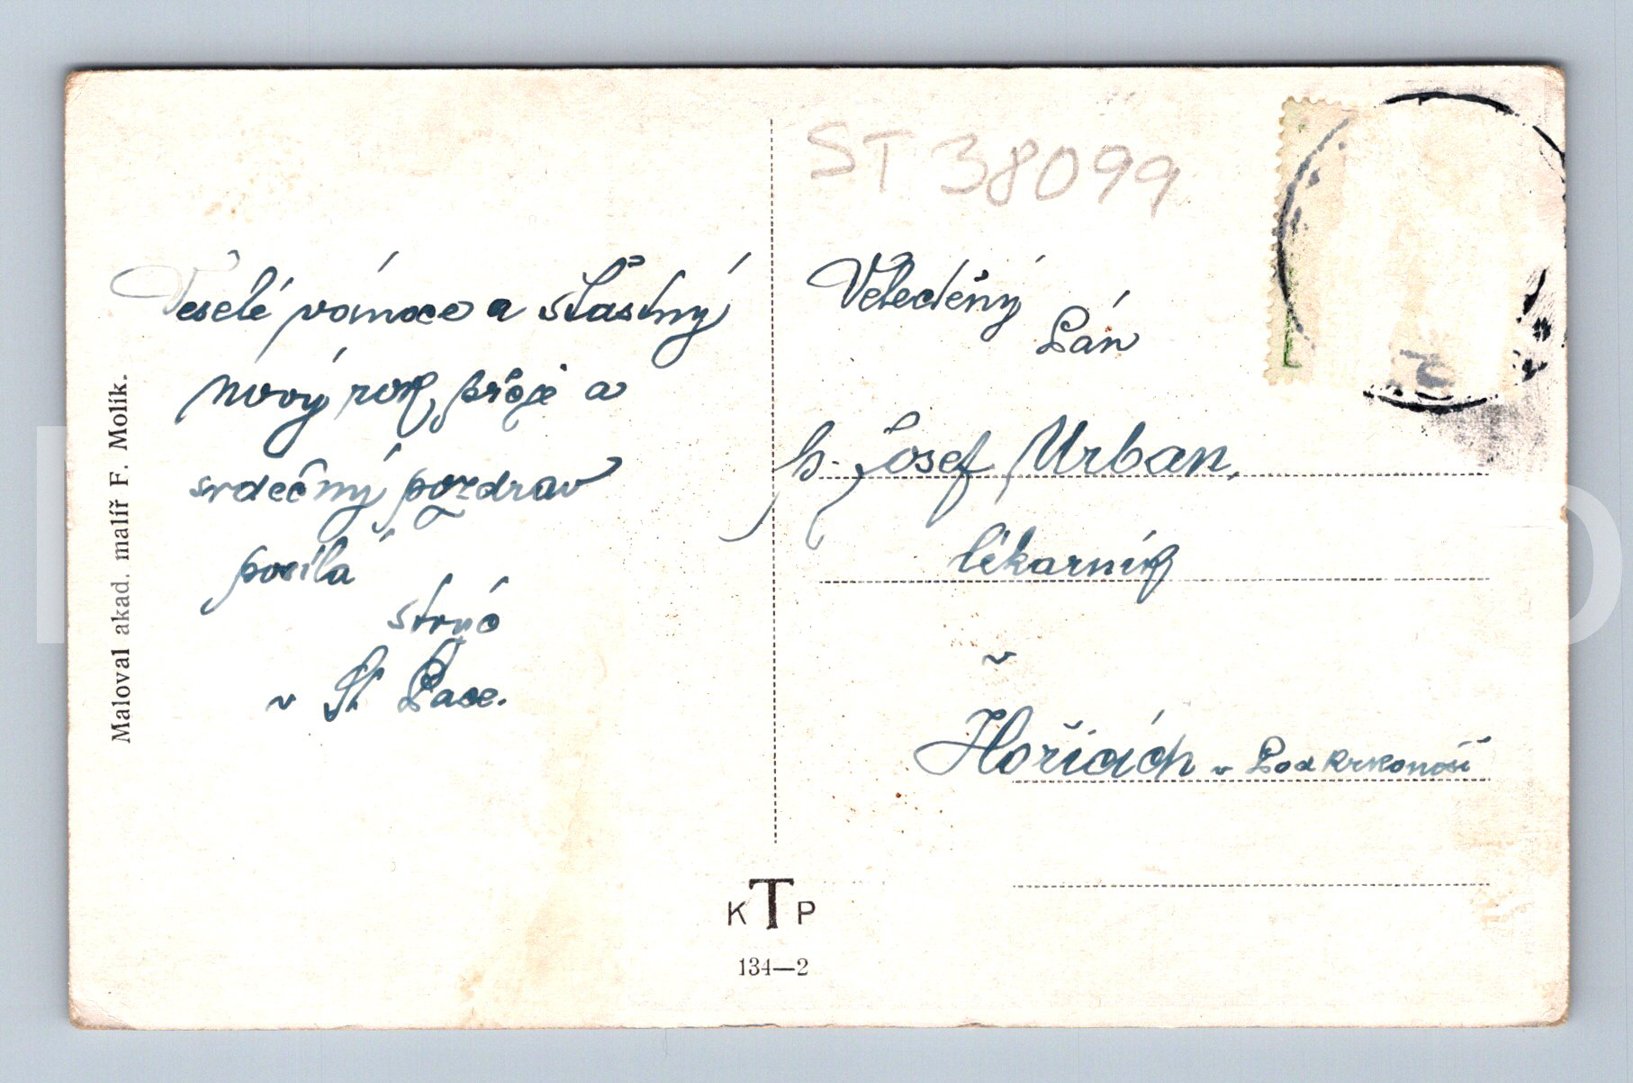 Veselé vánoce a šťastný
nový rok přeje a
srdečný pozdrav
posílá
strýc
v St. Pace.
Maloval akad. malíř F. Molík.
ST 38099
Velectěný
Pán
p. Josef Urban,
lékárník
v
Hořicích v Podkrkonoší
K T P
134—2